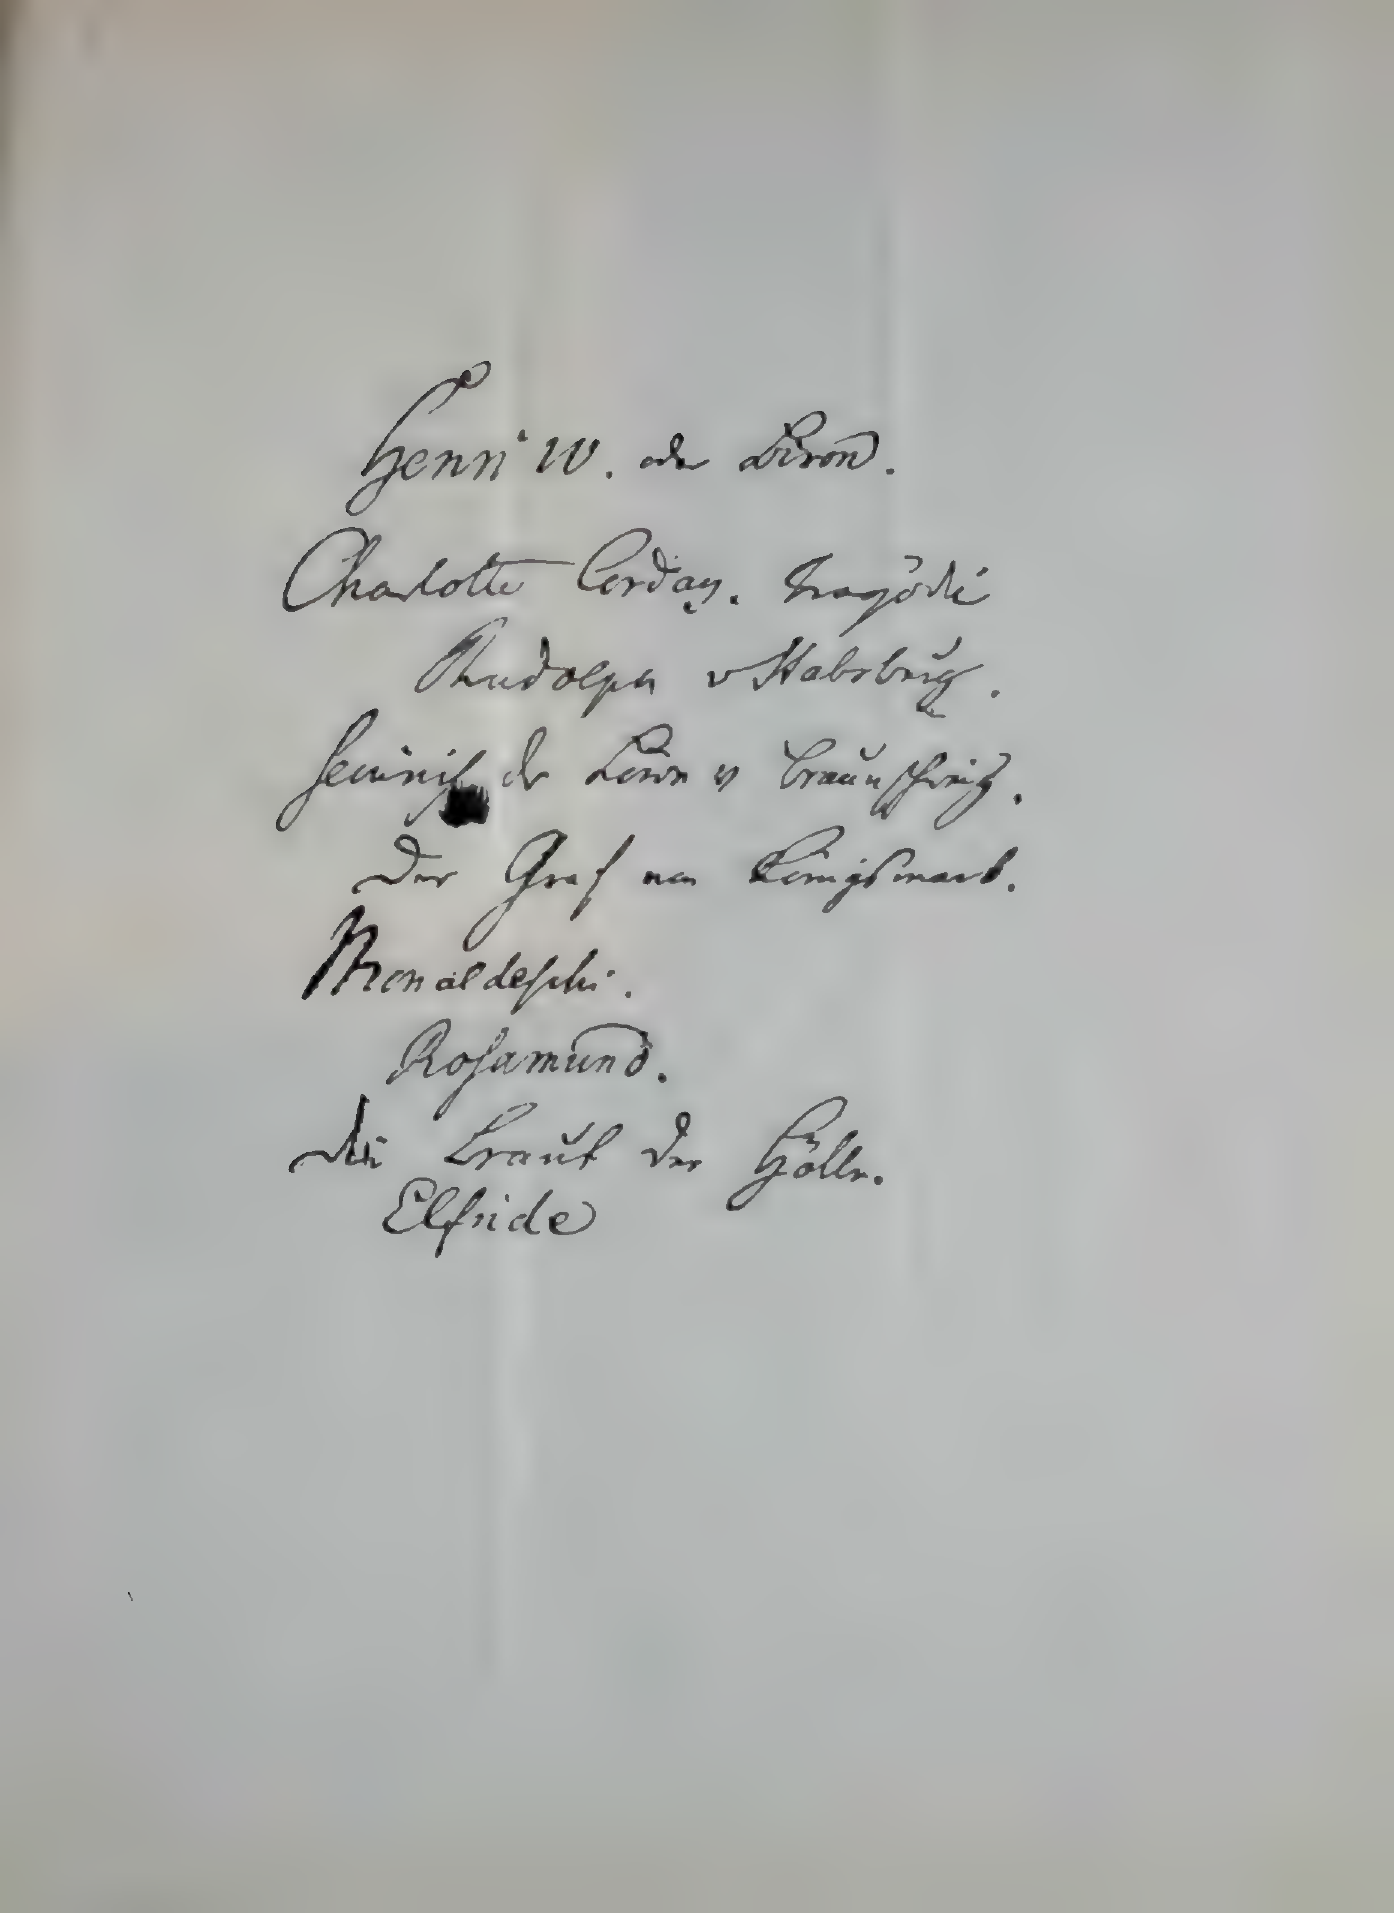 Henri IV. oder Biron.
Charlotte Corday. Tragödie
Rudolph v Habsburg.
Heinrich der Löwe v Braunschweig.
Der Graf von Königsmark.
Monaldeschi.
Rosamund.
Die Braut der Hölle.
Elfride